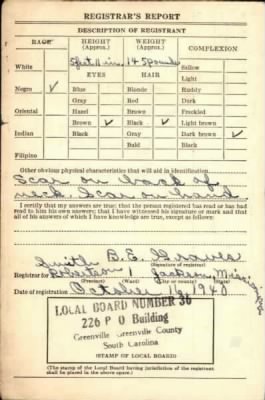 REGISTRAR'S REPORT
DESCRIPTION OF REGISTRANT
RACE HEIGHT (Approx.) WEIGHT (Approx.) COMPLEXION
White 5 feet 11 in. 145 pounds Sallow
EYES HAIR Light
Negro ✓ Blue Blonde Ruddy
Gray Red Dark
Oriental Hazel Brown Freckled
Brown ✓ Black ✓ Light brown
Indian Black Gray Dark brown ✓
Bald Black
Filipino
Other obvious physical characteristics that will aid in identification
Scar on back of
neck. Scar on hand
I certify that my answers are true; that the person registered has read or has had
read to him his own answers; that I have witnessed his signature or mark and that
all of his answers of which I have knowledge are true, except as follows:
B. E. Graves
(Signature of registrar)
Registrar for Robertson 1 Jackson,
(Precinct) (Ward) (City or county) (State)
Date of registration October 16, 1940
LOCAL BOARD NUMBER 36
226 P O Building
Greenville Greenville County
South Carolina
(STAMP OF LOCAL BOARD)
(The stamp of the Local Board having jurisdiction of the registrant
shall be placed in the above space.)